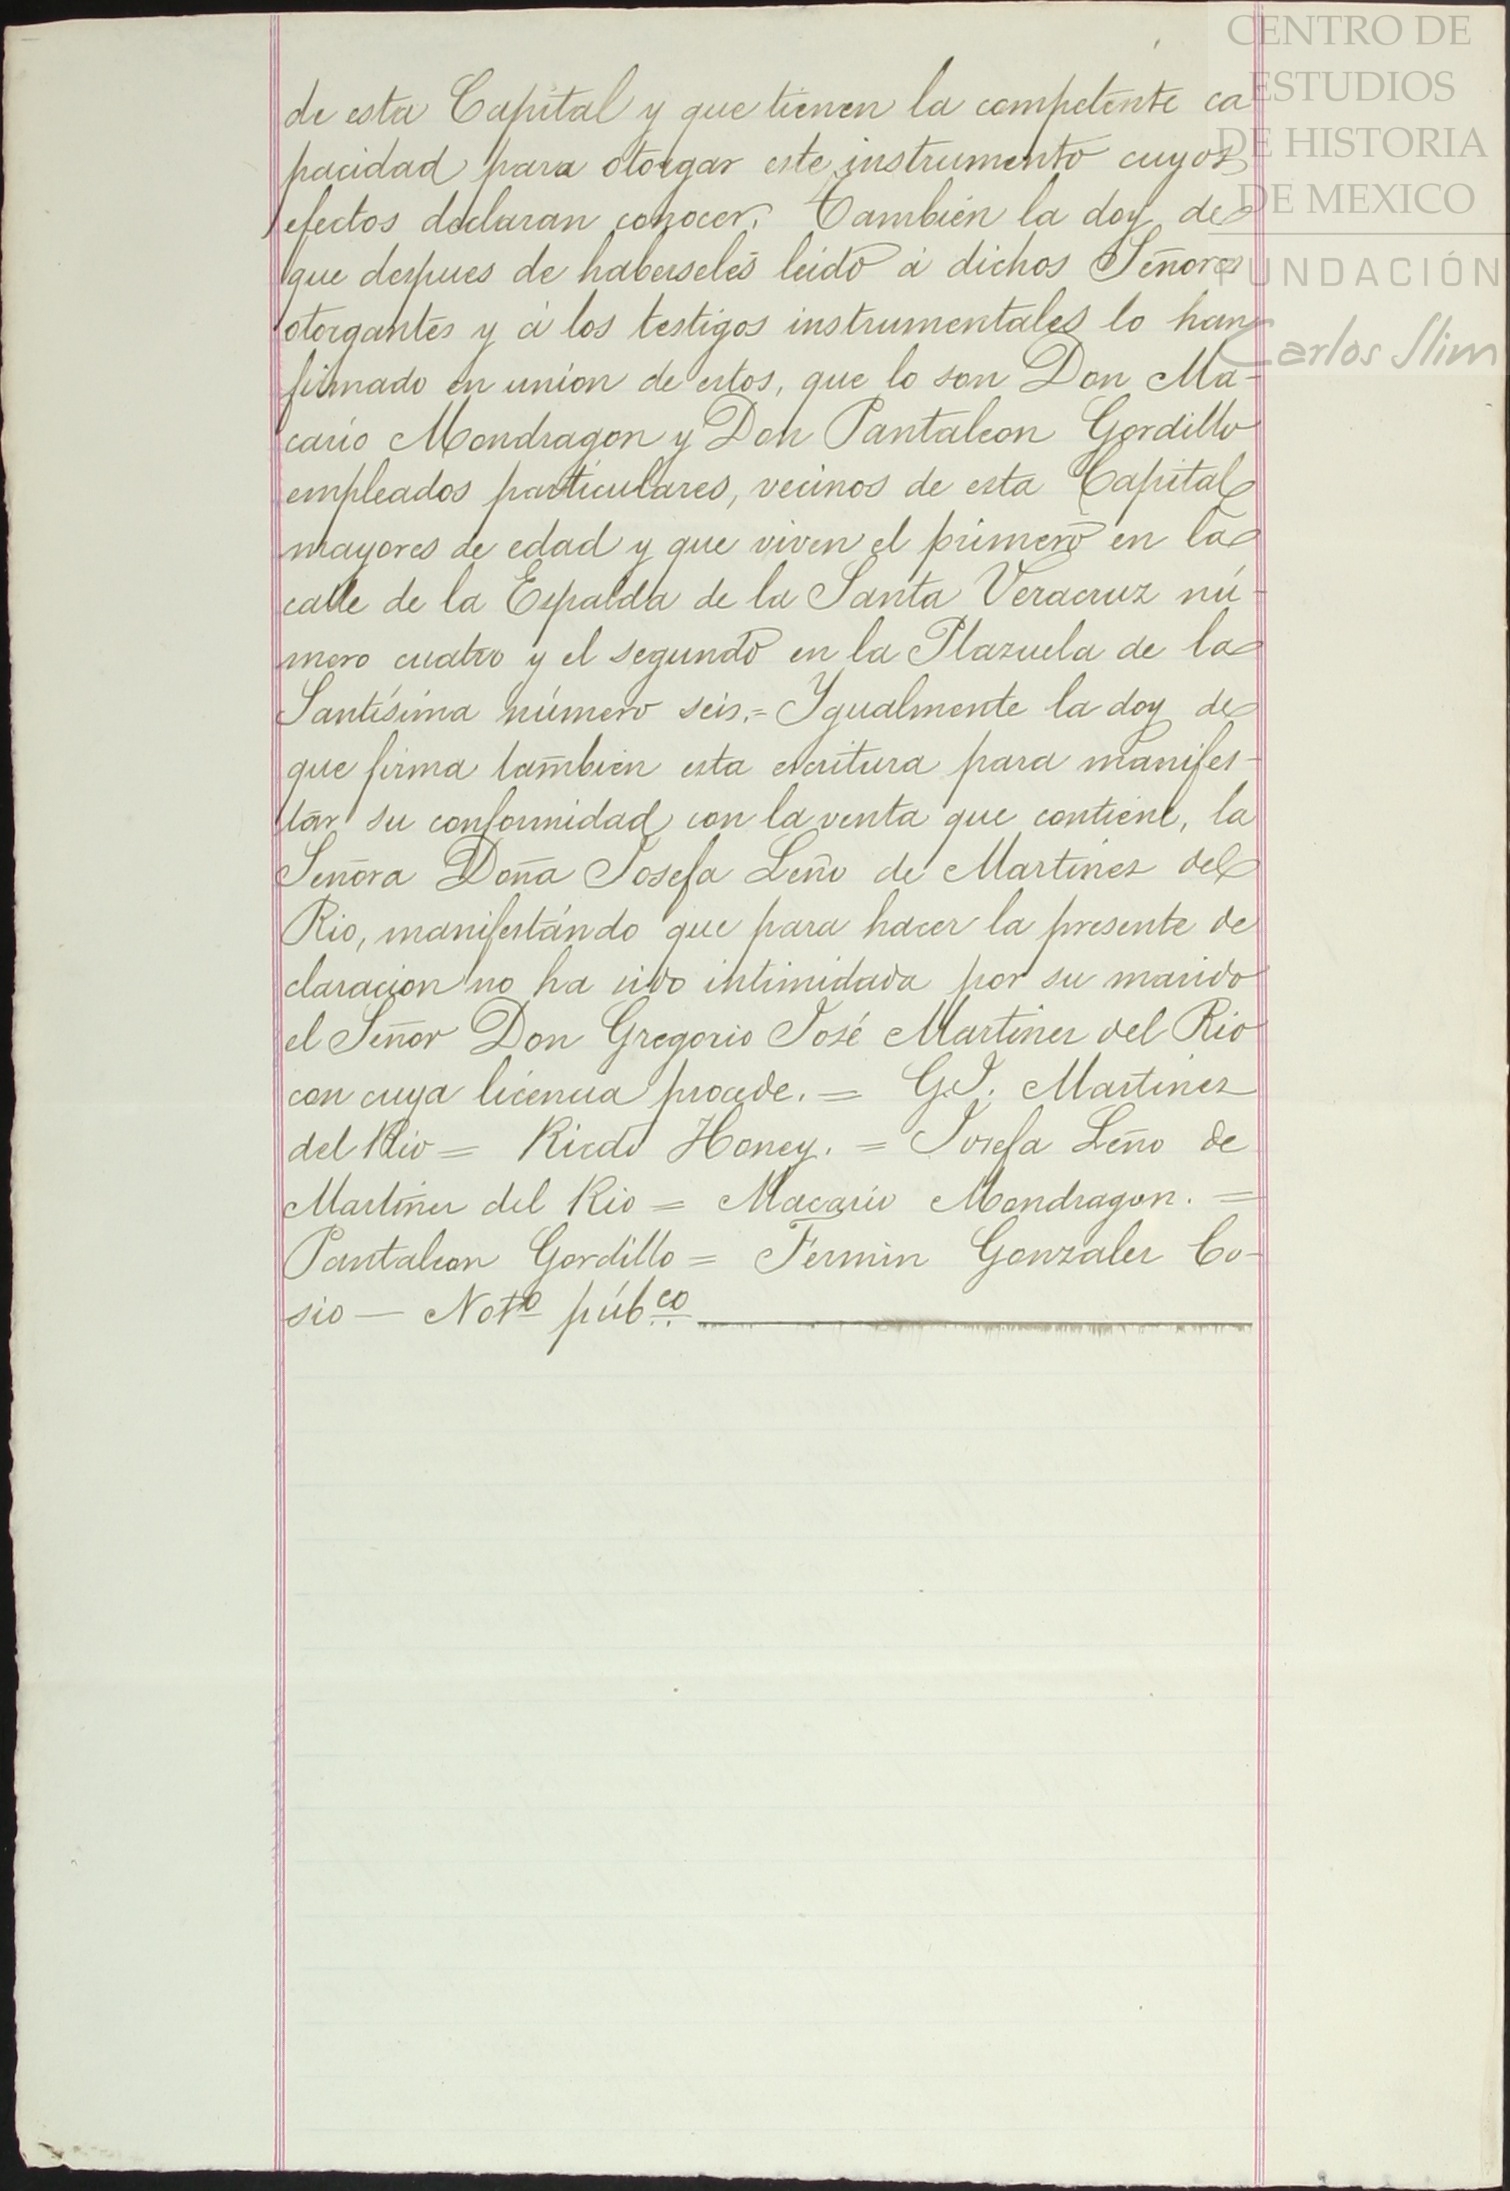 CENTRO DE
ESTUDIOS
DE HISTORIA
DE MEXICO
FUNDACIÓN
Carlos Slim
de esta Capital y que tienen la competente ca
pacidad para otorgar este instrumento cuyos
efectos declaran conocer. Tambien la doy de
que despues de haberseles leido á dichos Señores
otorgantes y á los testigos instrumentales lo han
firmado en union de estos, que lo son Don Ma-
cario Mondragon y Don Pantaleon Gordillo
empleados particulares, vecinos de esta Capital
mayores de edad y que viven el primero en la
calle de la Espalda de la Santa Veracruz nú-
mero cuatro y el segundo en la Plazuela de la
Santísima número seis.= Ygualmente la doy de
que firma tambien esta escritura para manifes-
tar su conformidad con la venta que contiene, la
Señora Doña Josefa Leño de Martinez del
Rio, manifestándo que para hacer la presente de
claracion no ha sido intimidada por su marido
el Señor Don Gregorio José Martinez del Rio
con cuya licencia procede. = G.J. Martinez
del Rio = Ricdo Honey. = Josefa Leño de
Martinez del Rio = Macario Mondragon. =
Pantaleon Gordillo = Fermin Gonzalez Co-
sio — Noto púbco